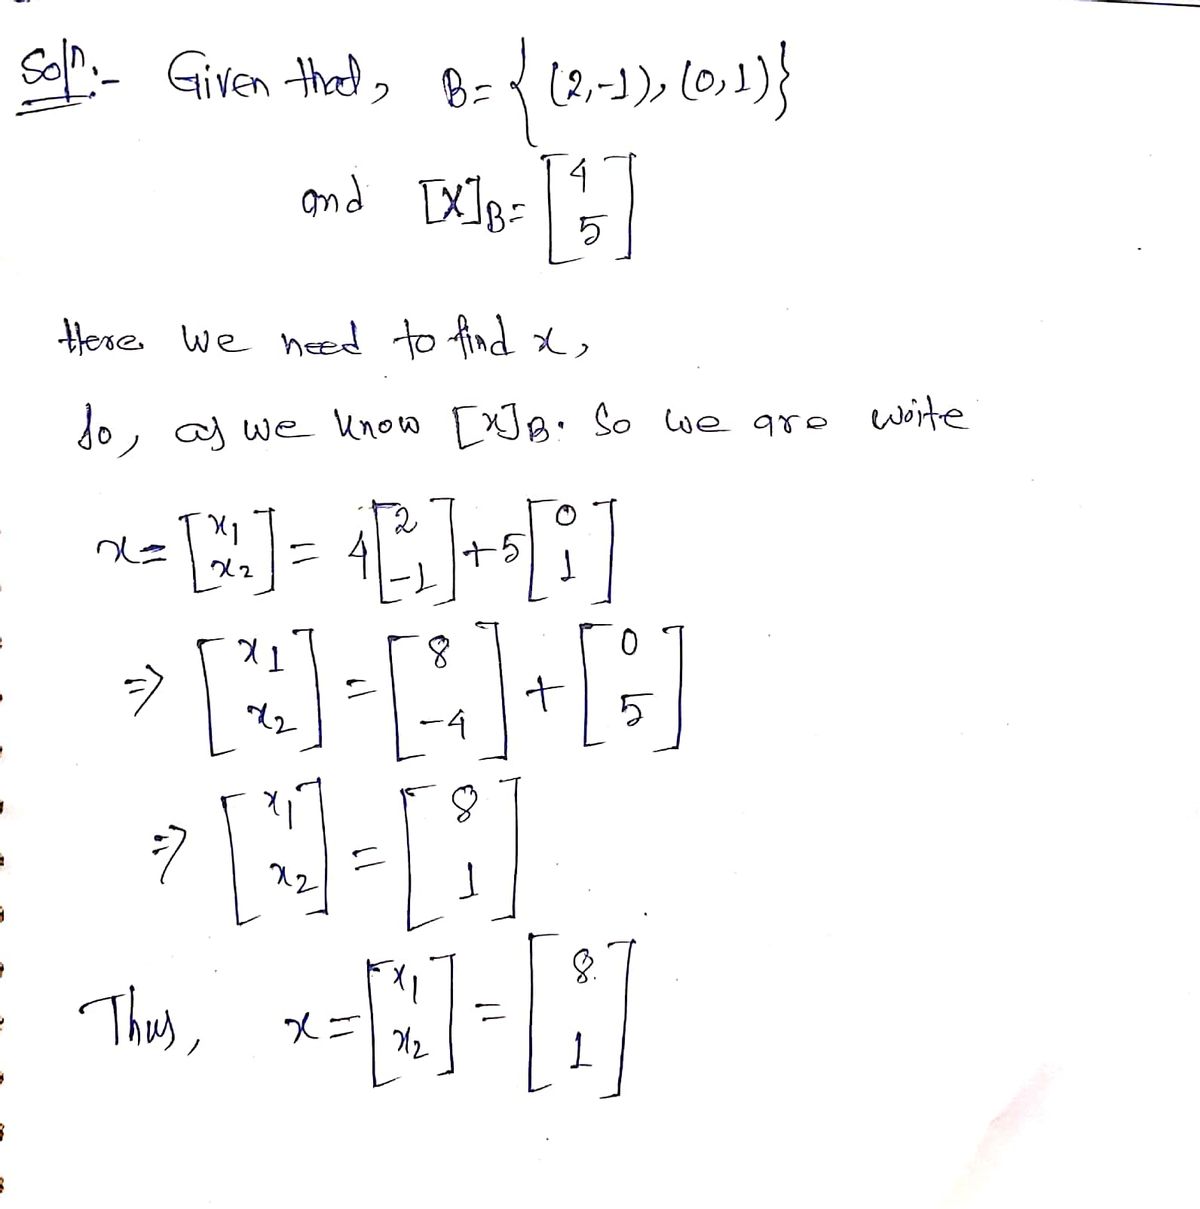 Soln:- Given that, B = { (2,-1), (0,1) }
and [X]B = [4 5]
Here we need to find x,
So, as we know [x]B. So we are write
x = [x1 x2] = 4[2 -1] + 5[0 1]
=> [x1 x2] = [8 -4] + [0 5]
=> [x1 x2] = [8 1]
Thus, x = [x1 x2] = [8 1]